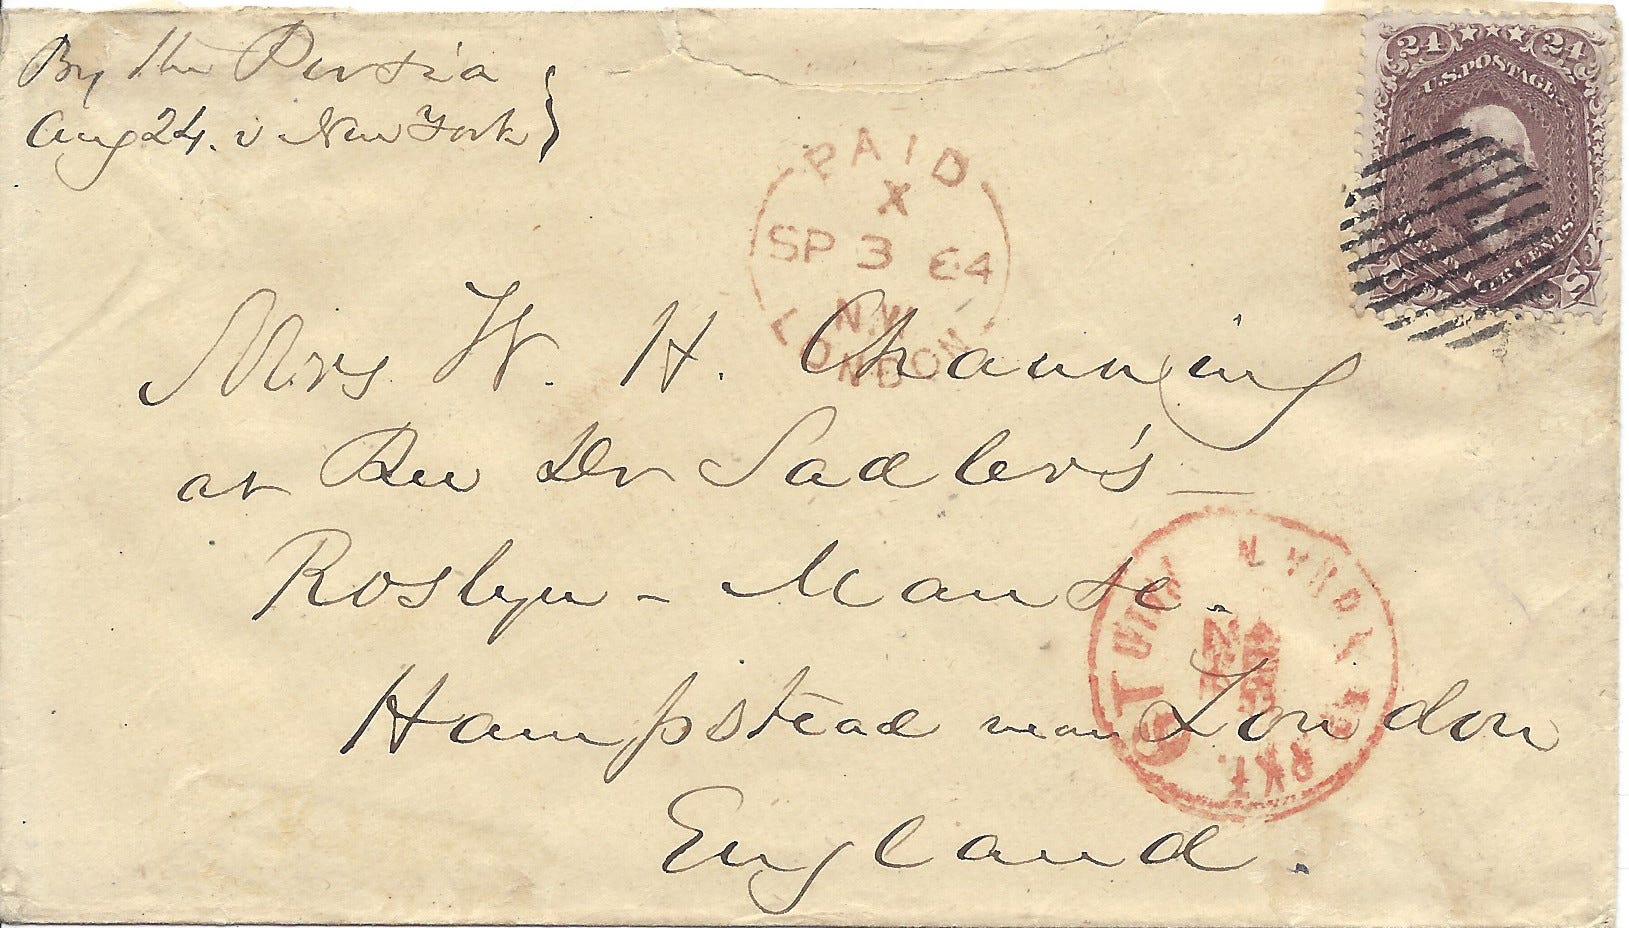 By the Persia
Aug 24. v New York
24 24
U.S. POSTAGE
TWENTY FOUR CENTS
U S
PAID
X
SP 3 64
N.W
LONDON
Mrs W. H. Channing
at Rev Dr Sadler's
Roslyn - Manse.
Hampstead near London
England.
N. YORK
PKT.